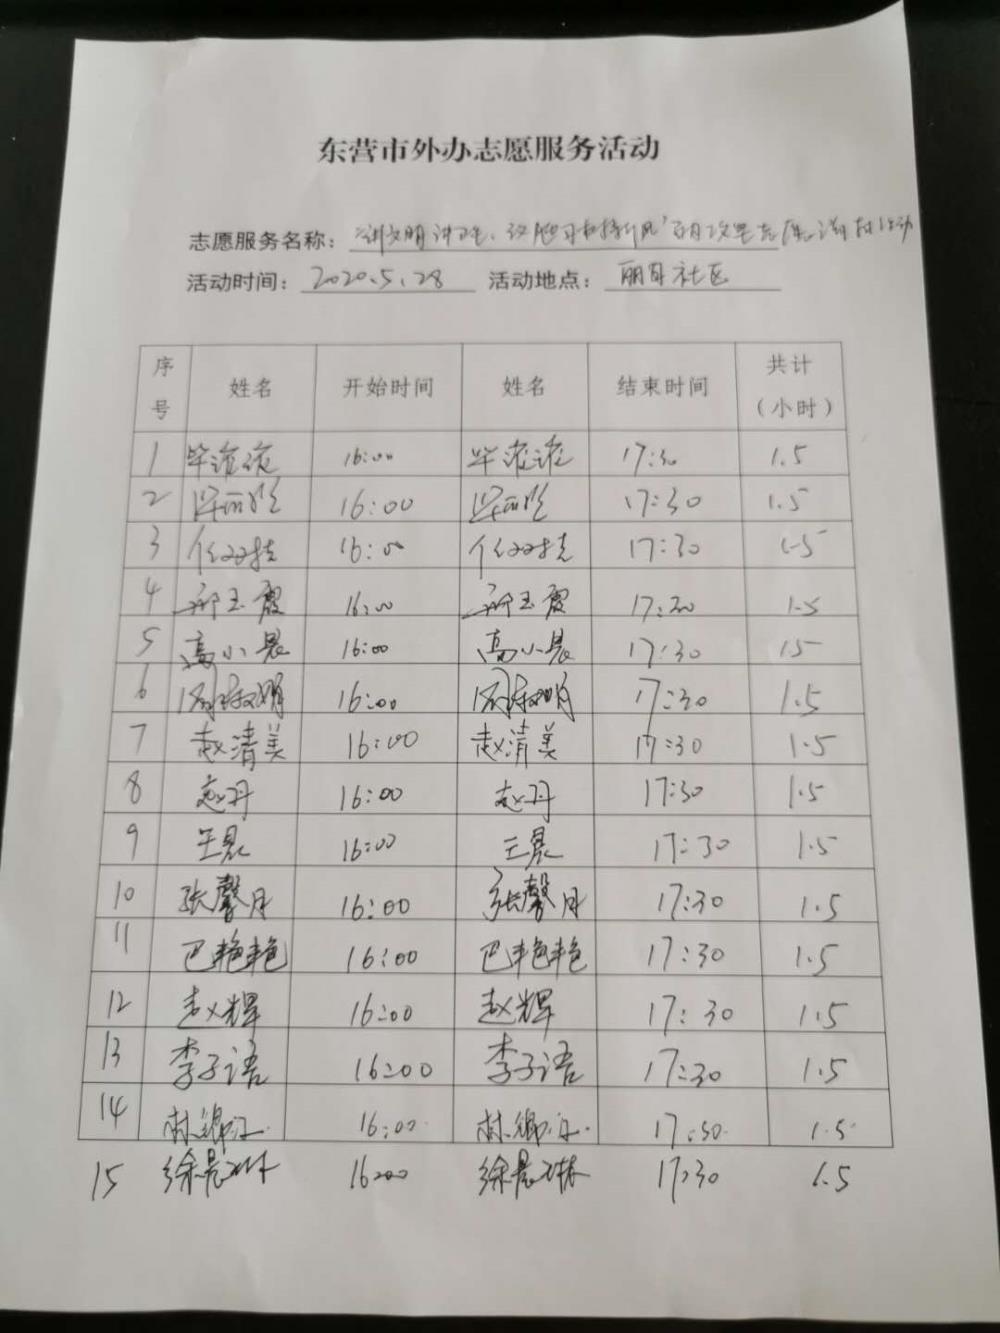 东营市外办志愿服务活动
志愿服务名称：“讲文明讲卫生、 新风”
活动时间：2020.5.28 活动地点：丽日社区
序号 姓名 开始时间 姓名 结束时间 共计（小时）
1 毕 16:00 毕 17:30 1.5
2 16:00 17:30 1.5
3 任 16:00 任 17:30 1.5
4 玉霞 16:00 玉霞 17:30 1.5
5 高小晨 16:00 高小晨 17:30 1.5
6 周 明 16:00 周 明 17:30 1.5
7 赵清美 16:00 赵清美 17:30 1.5
8 赵丹 16:00 赵丹 17:30 1.5
9 王晨 16:00 王晨 17:30 1.5
10 张馨月 16:00 张馨月 17:30 1.5
11 巴艳艳 16:00 巴艳艳 17:30 1.5
12 赵辉 16:00 赵辉 17:30 1.5
13 李子语 16:00 李子语 17:30 1.5
14 林 16:00 林 17:30 1.5
15 徐晨琳 16:00 徐晨琳 17:30 1.5